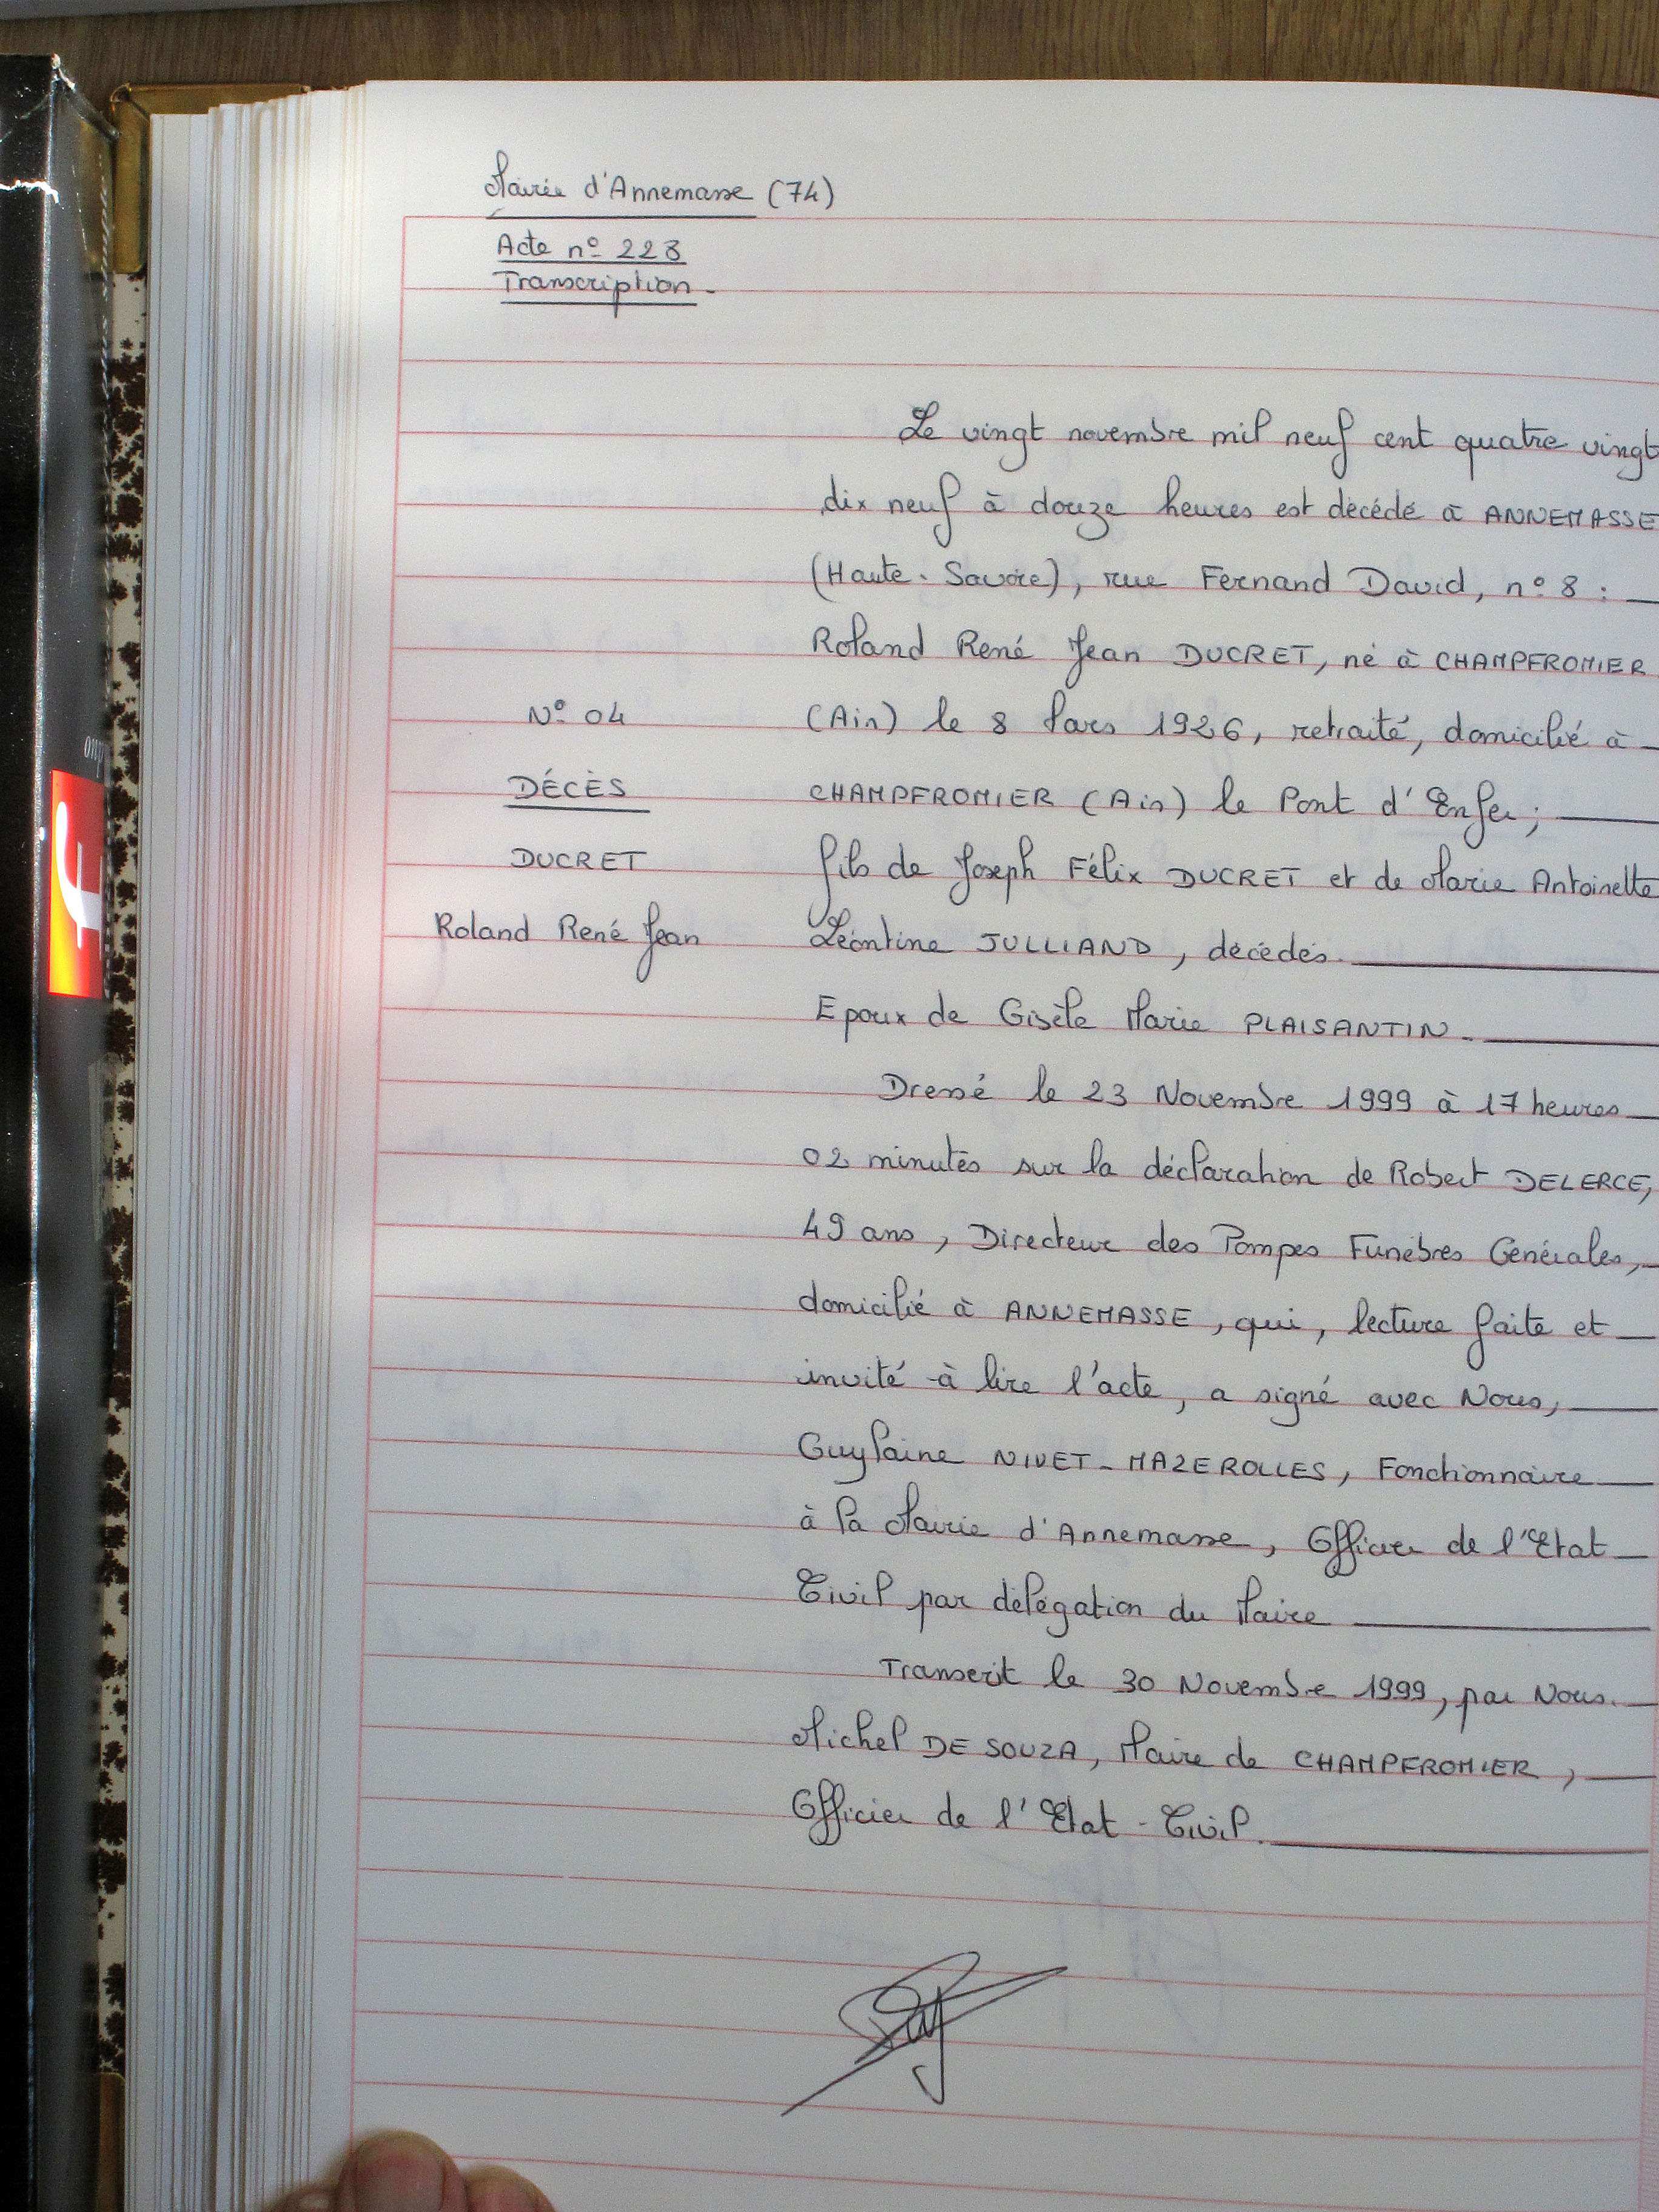 Mairie d'Annemasse (74)
Acte nº 228
Transcription.
Le vingt novembre mil neuf cent quatre vingt
dix neuf à douze heures est décédé à ANNEMASSE
(Haute-Savoie), rue Fernand David, nº 8 :
Roland René Jean DUCRET, né à CHAMPFROMIER
Nº 04
(Ain) le 8 Mars 1926, retraité, domicilié à
DÉCÈS
CHAMPFROMIER (Ain) le Pont d'Enfer;
DUCRET
fils de Joseph Félix DUCRET et de Marie Antoinette
Roland René Jean
Léontine JULLIAND, décédés.
Epoux de Gisèle Marie PLAISANTIN.
Dressé le 23 Novembre 1999 à 17 heures
02 minutes sur la déclaration de Robert DELERCE,
49 ans, Directeur des Pompes Funèbres Générales,
domicilié à ANNEMASSE, qui, lecture faite et
invité à lire l'acte, a signé avec Nous,
Guylaine NIVET-MAZEROLLES, Fonctionnaire
à la Mairie d'Annemasse, Officier de l'Etat
Civil par délégation du Maire
Transcrit le 30 Novembre 1999, par Nous.
Michel DE SOUZA, Maire de CHAMPFROMIER,
Officier de l'Etat-Civil.